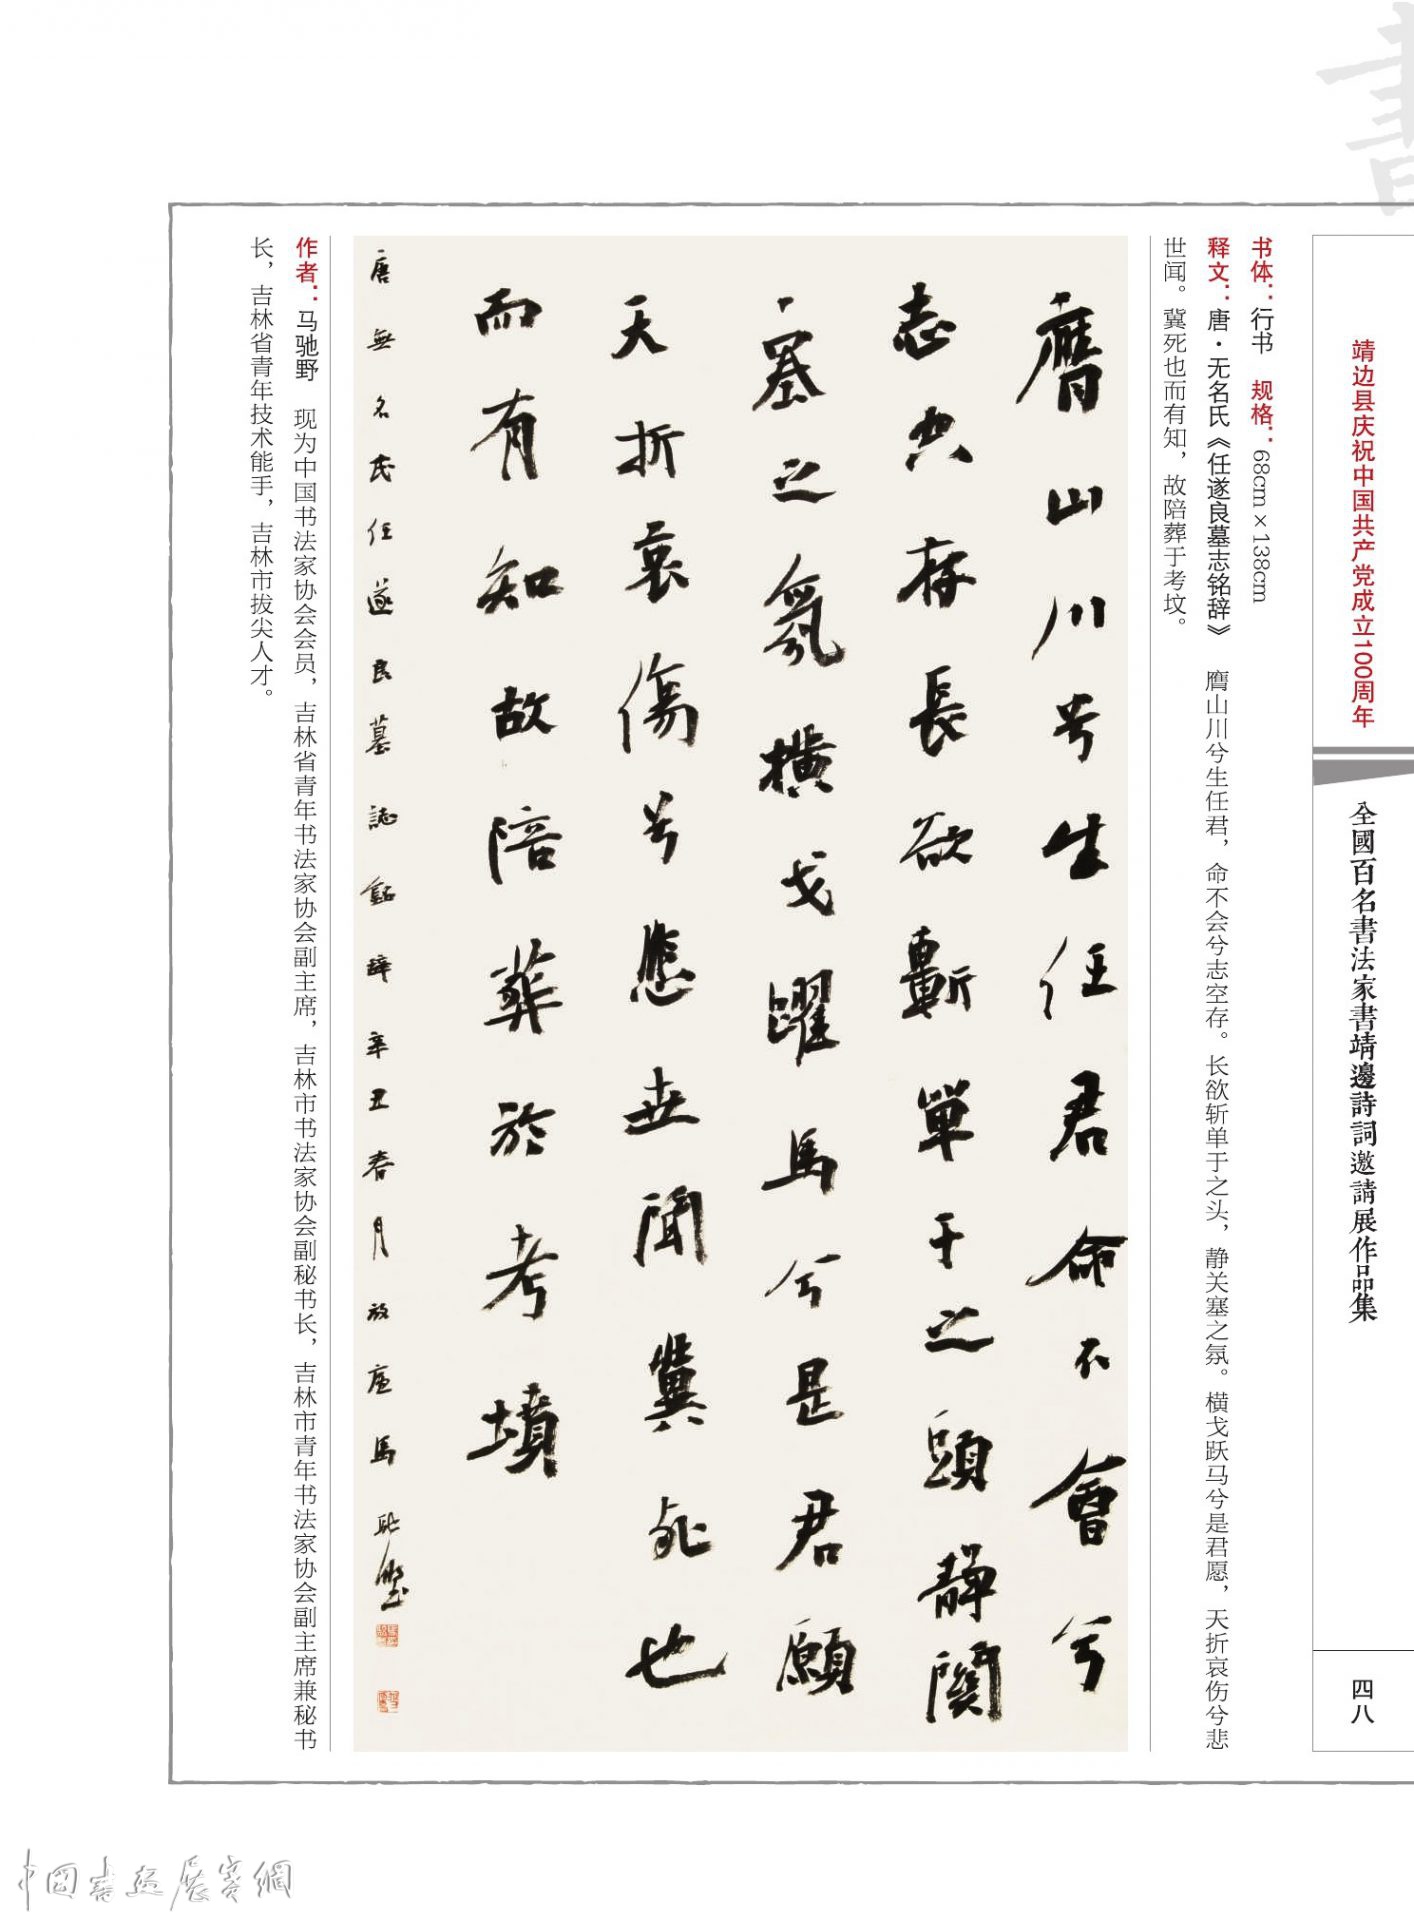 書
靖边县庆祝中国共产党成立100周年
全國百名書法家書靖邊詩詞邀請展作品集
四八
书体：行书　规格：68cm×138cm
释文：唐·无名氏《任遂良墓志铭辞》　膺山川兮生任君，命不会兮志空存。长欲斩单于之头，静关塞之氛。横戈跃马兮是君愿，天折哀伤兮悲
世闻。冀死也而有知，故陪葬于考坟。
膺山川兮生任君命不會兮
志空存長欲斬單于之頭靜関
塞之氛橫戈躍馬兮是君願
天折哀傷兮悲世聞冀死也
而有知故陪葬於考墳
唐無名氏任遂良墓誌銘辞辛丑春月放廬馬馳野
作者：马驰野　现为中国书法家协会会员，吉林省青年书法家协会副主席，吉林市书法家协会副秘书长，吉林市青年书法家协会副主席兼秘书
长，吉林省青年技术能手，吉林市拔尖人才。
中國書畫展賽網